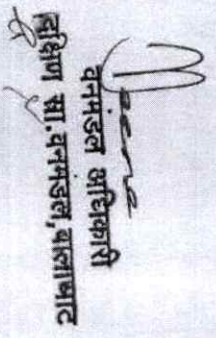 Meena
वनमंडल अधिकारी
दक्षिण सा. वनमंडल, बालाघाट